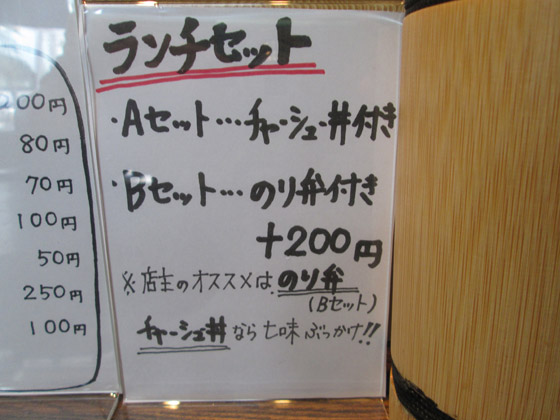 ランチセット
・Aセット…チャーシュー丼付き
・Bセット…のり弁付き
+200円
※店主のオススメは のり弁
(Bセット)
チャーシュー丼なら七味ぶっかけ!!
200円
80円
70円
100円
50円
250円
100円